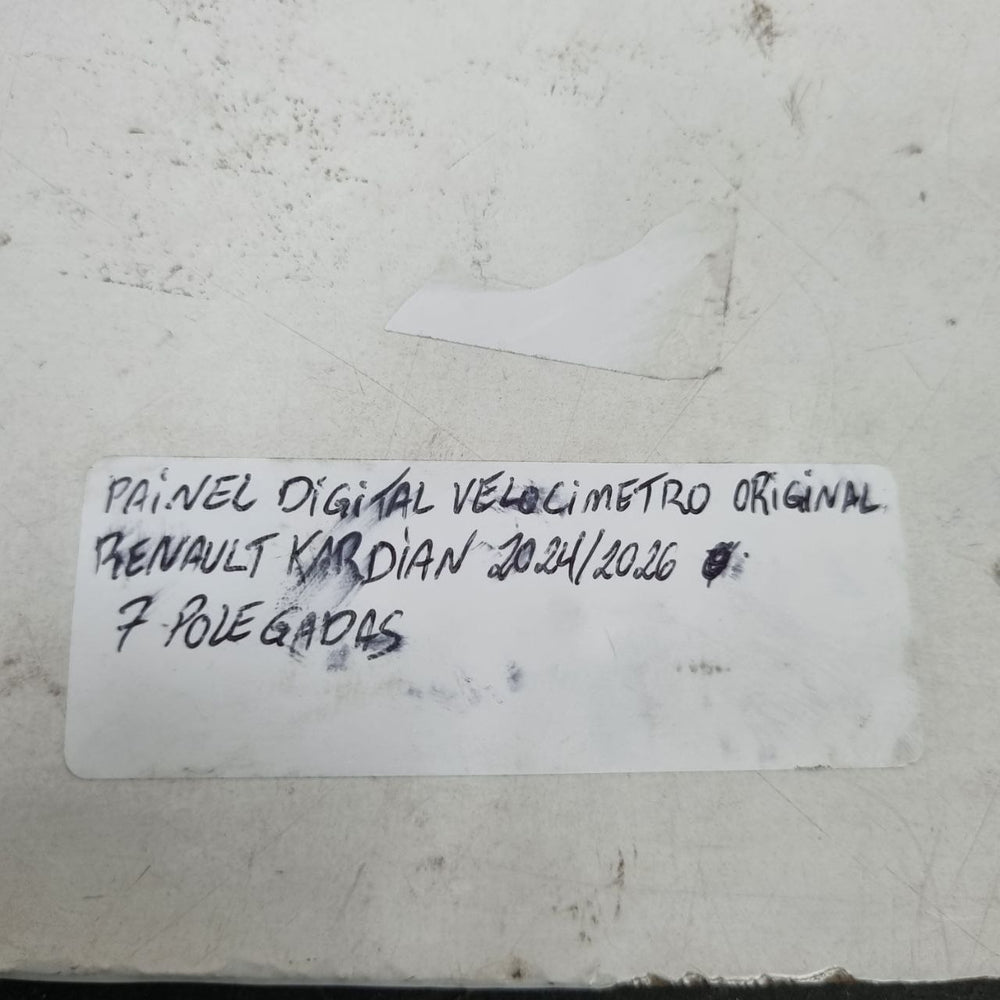 PAINEL DIGITAL VELOCIMETRO ORIGINAL
RENAULT KARDIAN 2024/2026
7 POLEGADAS